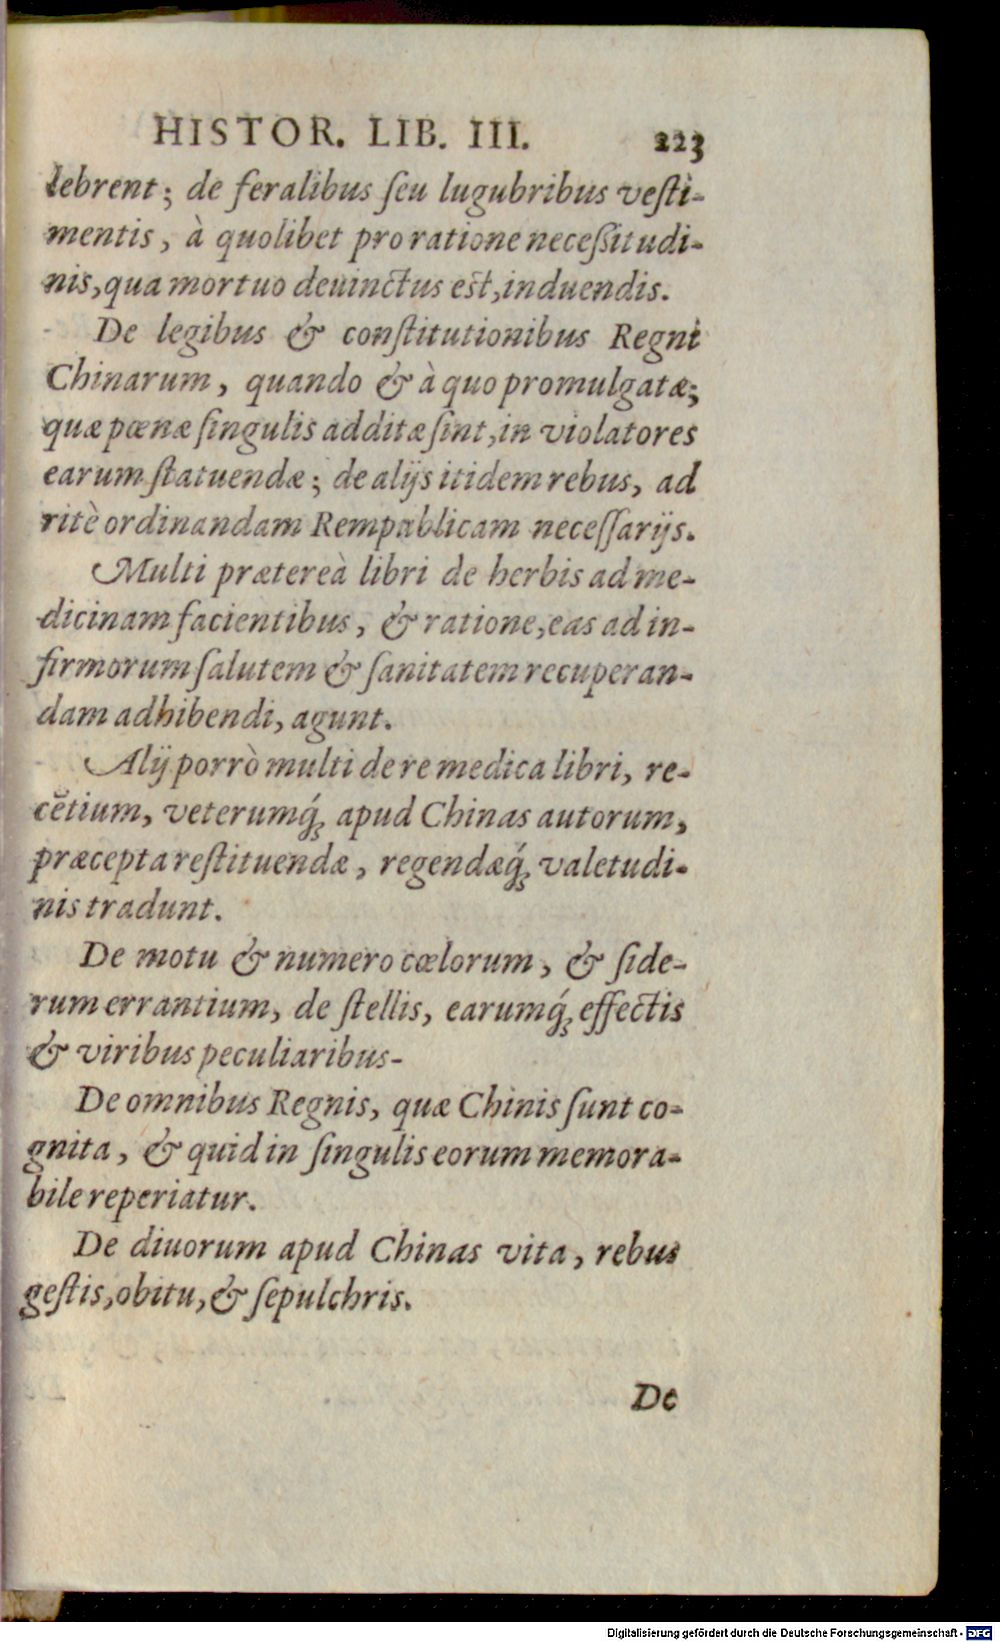 HISTOR. LIB. III. 223
lebrent; de feralibus ſeu lugubribus veſti-
mentis, à quolibet pro ratione neceßitudi-
nis, qua mortuo deuinctus est, induendis.
De legibus & conſtitutionibus Regni
Chinarum, quando & à quo promulgatæ;
quæ pœnæ ſingulis additæ ſint, in violatores
earum ſtatuendæ; de alijs itidem rebus, ad
ritè ordinandam Rempublicam neceſſarijs.
Multi prætereà libri de herbis ad me-
dicinam facientibus, & ratione, eas ad in-
firmorum ſalutem & ſanitatem recuperan-
dam adhibendi, agunt.
Alij porrò multi de re medica libri, re-
cẽtium, veterumq́; apud Chinas autorum,
præcepta reſtituendæ, regendæq́; valetudi-
nis tradunt.
De motu & numero cœlorum, & ſide-
rum errantium, de ſtellis, earumq́; effectis
& viribus peculiaribus-
De omnibus Regnis, quæ Chinis ſunt co-
gnita, & quid in ſingulis eorum memora-
bile reperiatur.
De diuorum apud Chinas vita, rebus
geſtis, obitu, & ſepulchris.
De
Digitalisierung gefördert durch die Deutsche Forschungsgemeinschaft - DFG